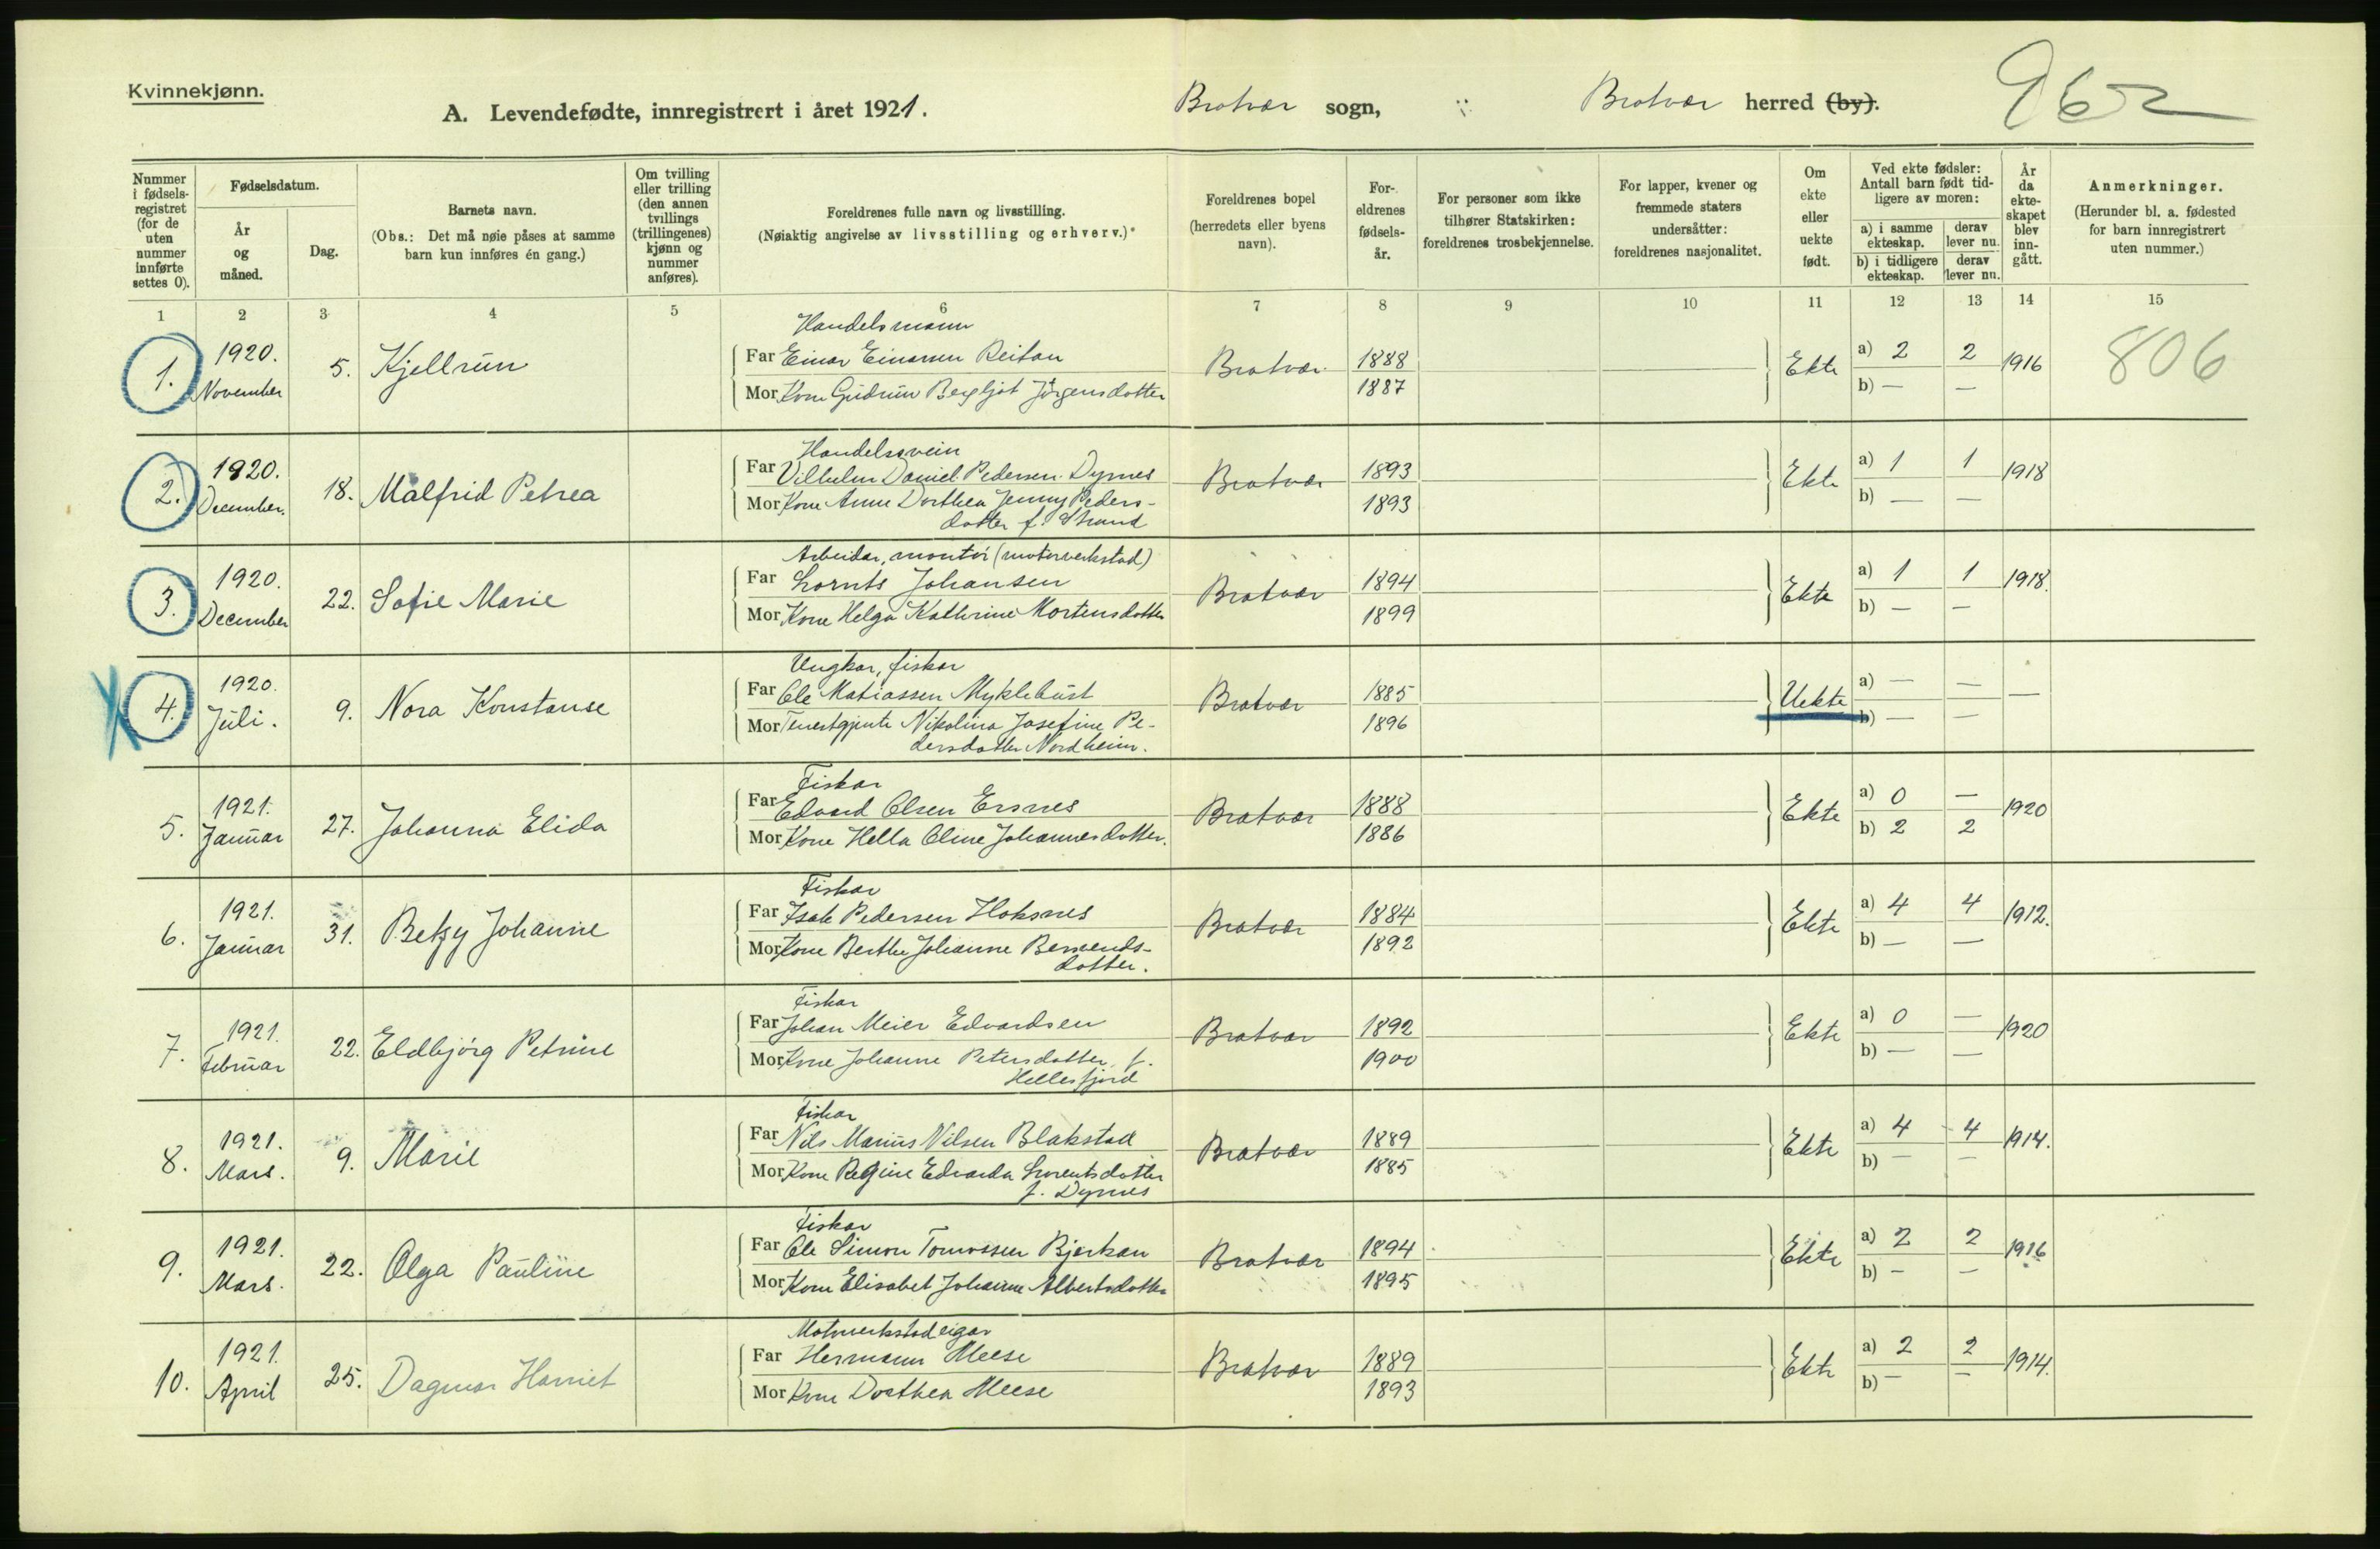 Kvinnekjønn.
A. Levendefødte, innregistrert i året 1921.
Bratvær sogn, Bratvær herred (by).
962
Nummer i fødsels-registret (for de uten nummer innførte settes 0).
Fødselsdatum.
År og måned.
Dag.
Barnets navn.
(Obs.: Det må nøie påses at samme barn kun innføres én gang.)
Om tvilling eller trilling (den annen tvillings (trillingenes) kjønn og nummer anføres).
Foreldrenes fulle navn og livsstilling.
(Nøiaktig angivelse av livsstilling og erhverv.)*
Foreldrenes bopel (herredets eller byens navn).
For-eldrenes fødsels-år.
For personer som ikke tilhører Statskirken: foreldrenes trosbekjennelse.
For lapper, kvener og fremmede staters undersåtter: foreldrenes nasjonalitet.
Om ekte eller uekte født.
Ved ekte fødsler: Antall barn født tid-ligere av moren:
a) i samme ekteskap. derav lever nu.
b) i tidligere ekteskap. derav lever nu.
År da ekte-skapet blev inn-gått.
Anmerkninger.
(Herunder bl. a. fødested for barn innregistrert uten nummer.)
1 2 3 4 5 6 7 8 9 10 11 12 13 14 15
Handelsmann
1. 1920. November 5. Kjellrun
Far Einar Einarsen Reitan Bratvær 1888 Ekte a) 2 2 1916 806
Mor Kone Gudrun Bergljot Jørgensdotter 1887 b) — —
Handelssvein
2. 1920. December. 18. Målfrid Petrea
Far Vilhelm Daniel Pedersen Dyrnes Bratvær 1893 Ekte a) 1 1 1918
Mor Kone Anne Dorthea Jenny Peders- 1893 b) — —
dotter f. Strand
Arbeidar, montör (motorverkstad)
3. 1920. December 22. Sofie Marie
Far Lornts Johansen Bratvær 1894 Ekte a) 1 1 1918.
Mor Kone Helga Kathrine Mortensdotter 1899 b) — —
Ungkar, fiskar
4. 1920. Juli. 9. Nora Konstanse
Far Ole Matiassen Myklebust Bratvær 1885 Uekte a) — — —
Mor Tenestgjente Nikolina Josefine Pe- 1896 b) — —
dersdotter Nordheim.
Fiskar
5. 1921. Januar 27. Johanna Elida
Far Edvard Olsen Ersnes Bratvær 1888 Ekte a) 0 — 1920
Mor Kone Hella Oline Johannesdotter. 1886 b) 2 2
Fiskar
6. 1921. Januar 31. Betzy Johanne
Far Isak Pedersen Hoksnes Bratvær 1884 Ekte a) 4 4 1912.
Mor Kone Berthe Johanne Bernends- 1892 b) — —
dotter.
Fiskar
7. 1921. Februar 22. Eldbjörg Petrine
Far Johan Meier Edvardsen Bratvær 1892 Ekte a) 0 — 1920
Mor Kone Johanne Petersdotter f. 1900 b) — —
Hellesfjord
Fiskar
8. 1921. Mars. 9. Marie
Far Nils Marius Nilsen Blakstad Bratvær 1889 Ekte a) 4 4 1914.
Mor Kone Regine Edvarda Lorentsdotter 1885 b) — —
f. Dyrnes
Fiskar
9. 1921. Mars. 22. Olga Pauline
Far Ole Simon Tomassen Bjerkan Bratvær 1894 Ekte a) 2 2 1916
Mor Kone Elisabet Johanne Albertsdotter 1895 b) — —
Motorverkstadeigar
10. 1921. April 25. Dagmar Harriet
Far Hermann Meese Bratvær 1889 Ekte a) 2 2 1914.
Mor Kone Dorthea Meese 1893 b) — —